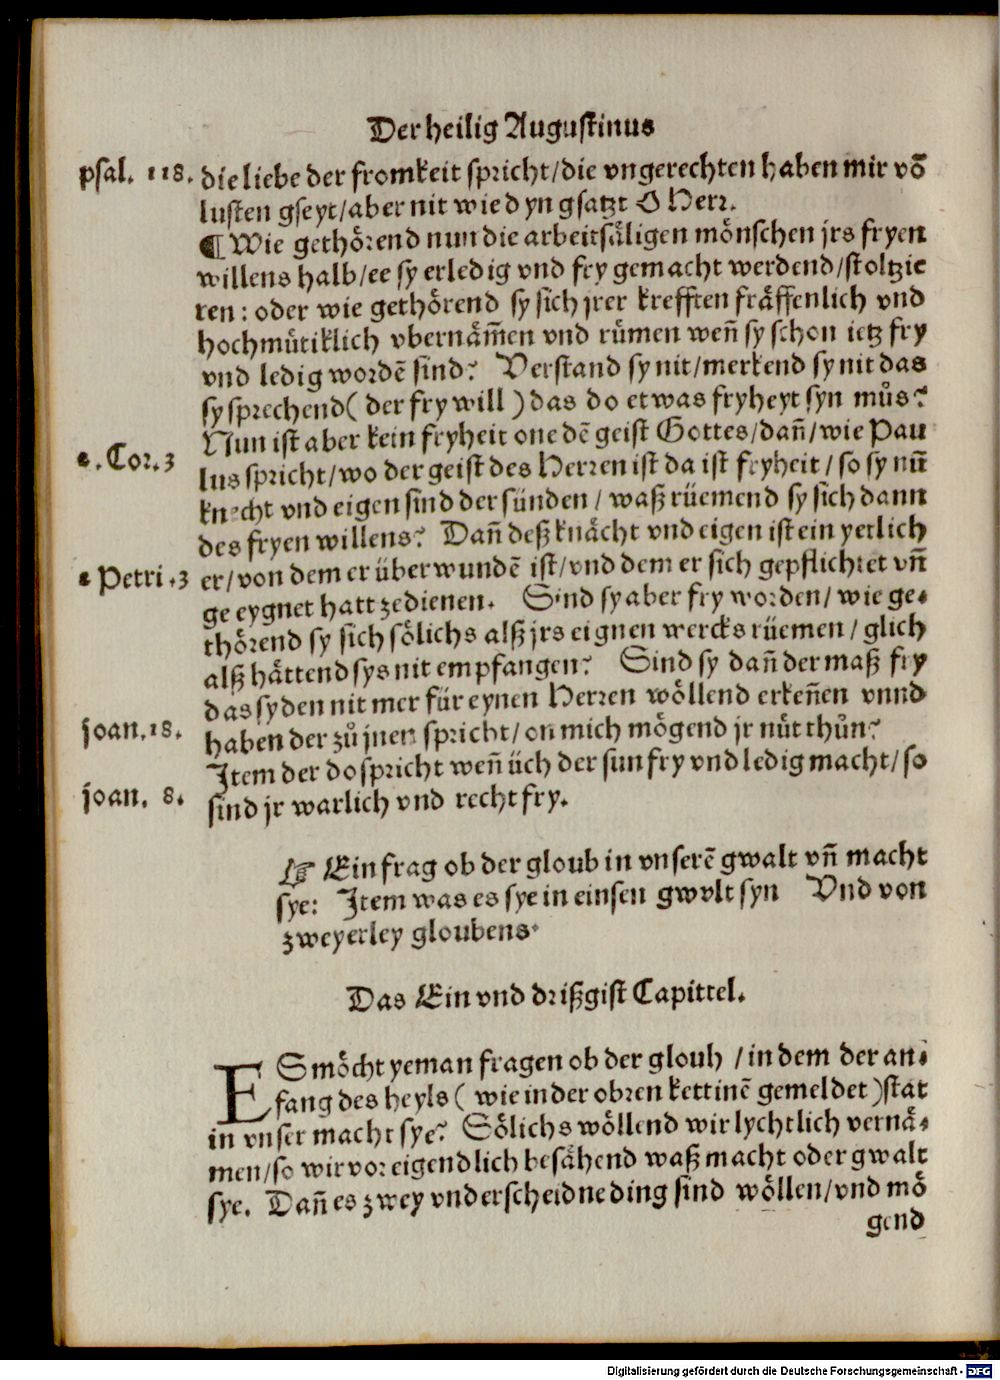 Der heilig Augustinus
psal. 118. die liebe der fromkeit spricht/die vngerechten haben mir võ
lusten gseyt/aber nit wie dyn gsatzt O Herr.
¶ Wie gethörend nun die arbeitsäligen mönschen jrs fryen
willens halb/ee sy erledig vnd fry gemacht werdend/stoltzie
ren: oder wie gethörend sy sich jrer krefften fräffenlich vnd
hochmütiklich vbernäm̃en vnd rümen weñ sy schon ietz fry
vnd ledig wordẽ sind? Verstand sy nit/merkend sy nit das
sy sprechend( der fry will ) das do etwas fryheyt syn můs?
Nun ist aber kein fryheit one dẽ geist Gottes/dañ/wie Pau
2. Cor. 3 lus spricht/wo der geist des Herren ist da ist fryheit/so sy nũ
knecht vnd eigen sind der sünden/waß rüemend sy sich dann
des fryen willens? Dañ deß knächt vnd eigen ist ein yetlich
2 Petri .3 er/von dem er überwundẽ ist/vnd dem er sich gepflichtet vñ
ge eygnet hatt zedienen. Sind sy aber fry worden/wie ge-
thörend sy sich sölichs alß jrs eignen wercks rüemen/glich
alß hättend sys nit empfangen? Sind sy dañ der maß fry
das sy den nit mer für eynen Herren wöllend erkeñen vnnd
joan. 18. haben der zů jnen spricht/on mich mögend jr nüt thůn?
Item der do spricht weñ üch der sun fry vnd ledig macht/so
joan. 8. sind jr warlich vnd recht fry.
☞ Ein frag ob der gloub in vnserẽ gwalt vñ macht
sye: Item was es sye in einsen gwvlt syn Vnd von
zweyerley gloubens.
Das Ein vnd drißgist Capittel.
ES möcht yeman fragen ob der glouh /in dem der an-
fang des heyls( wie in der obren kettinẽ gemeldet )stat
in vnser macht sye? Sölichs wöllend wir lychtlich vernä-
men/so wir vor eigendlich besähend waß macht oder gwalt
sye. Dañ es zwey vnderscheidne ding sind wöllen/vnd mö
gend
Digitalisierung gefördert durch die Deutsche Forschungsgemeinschaft - DFG